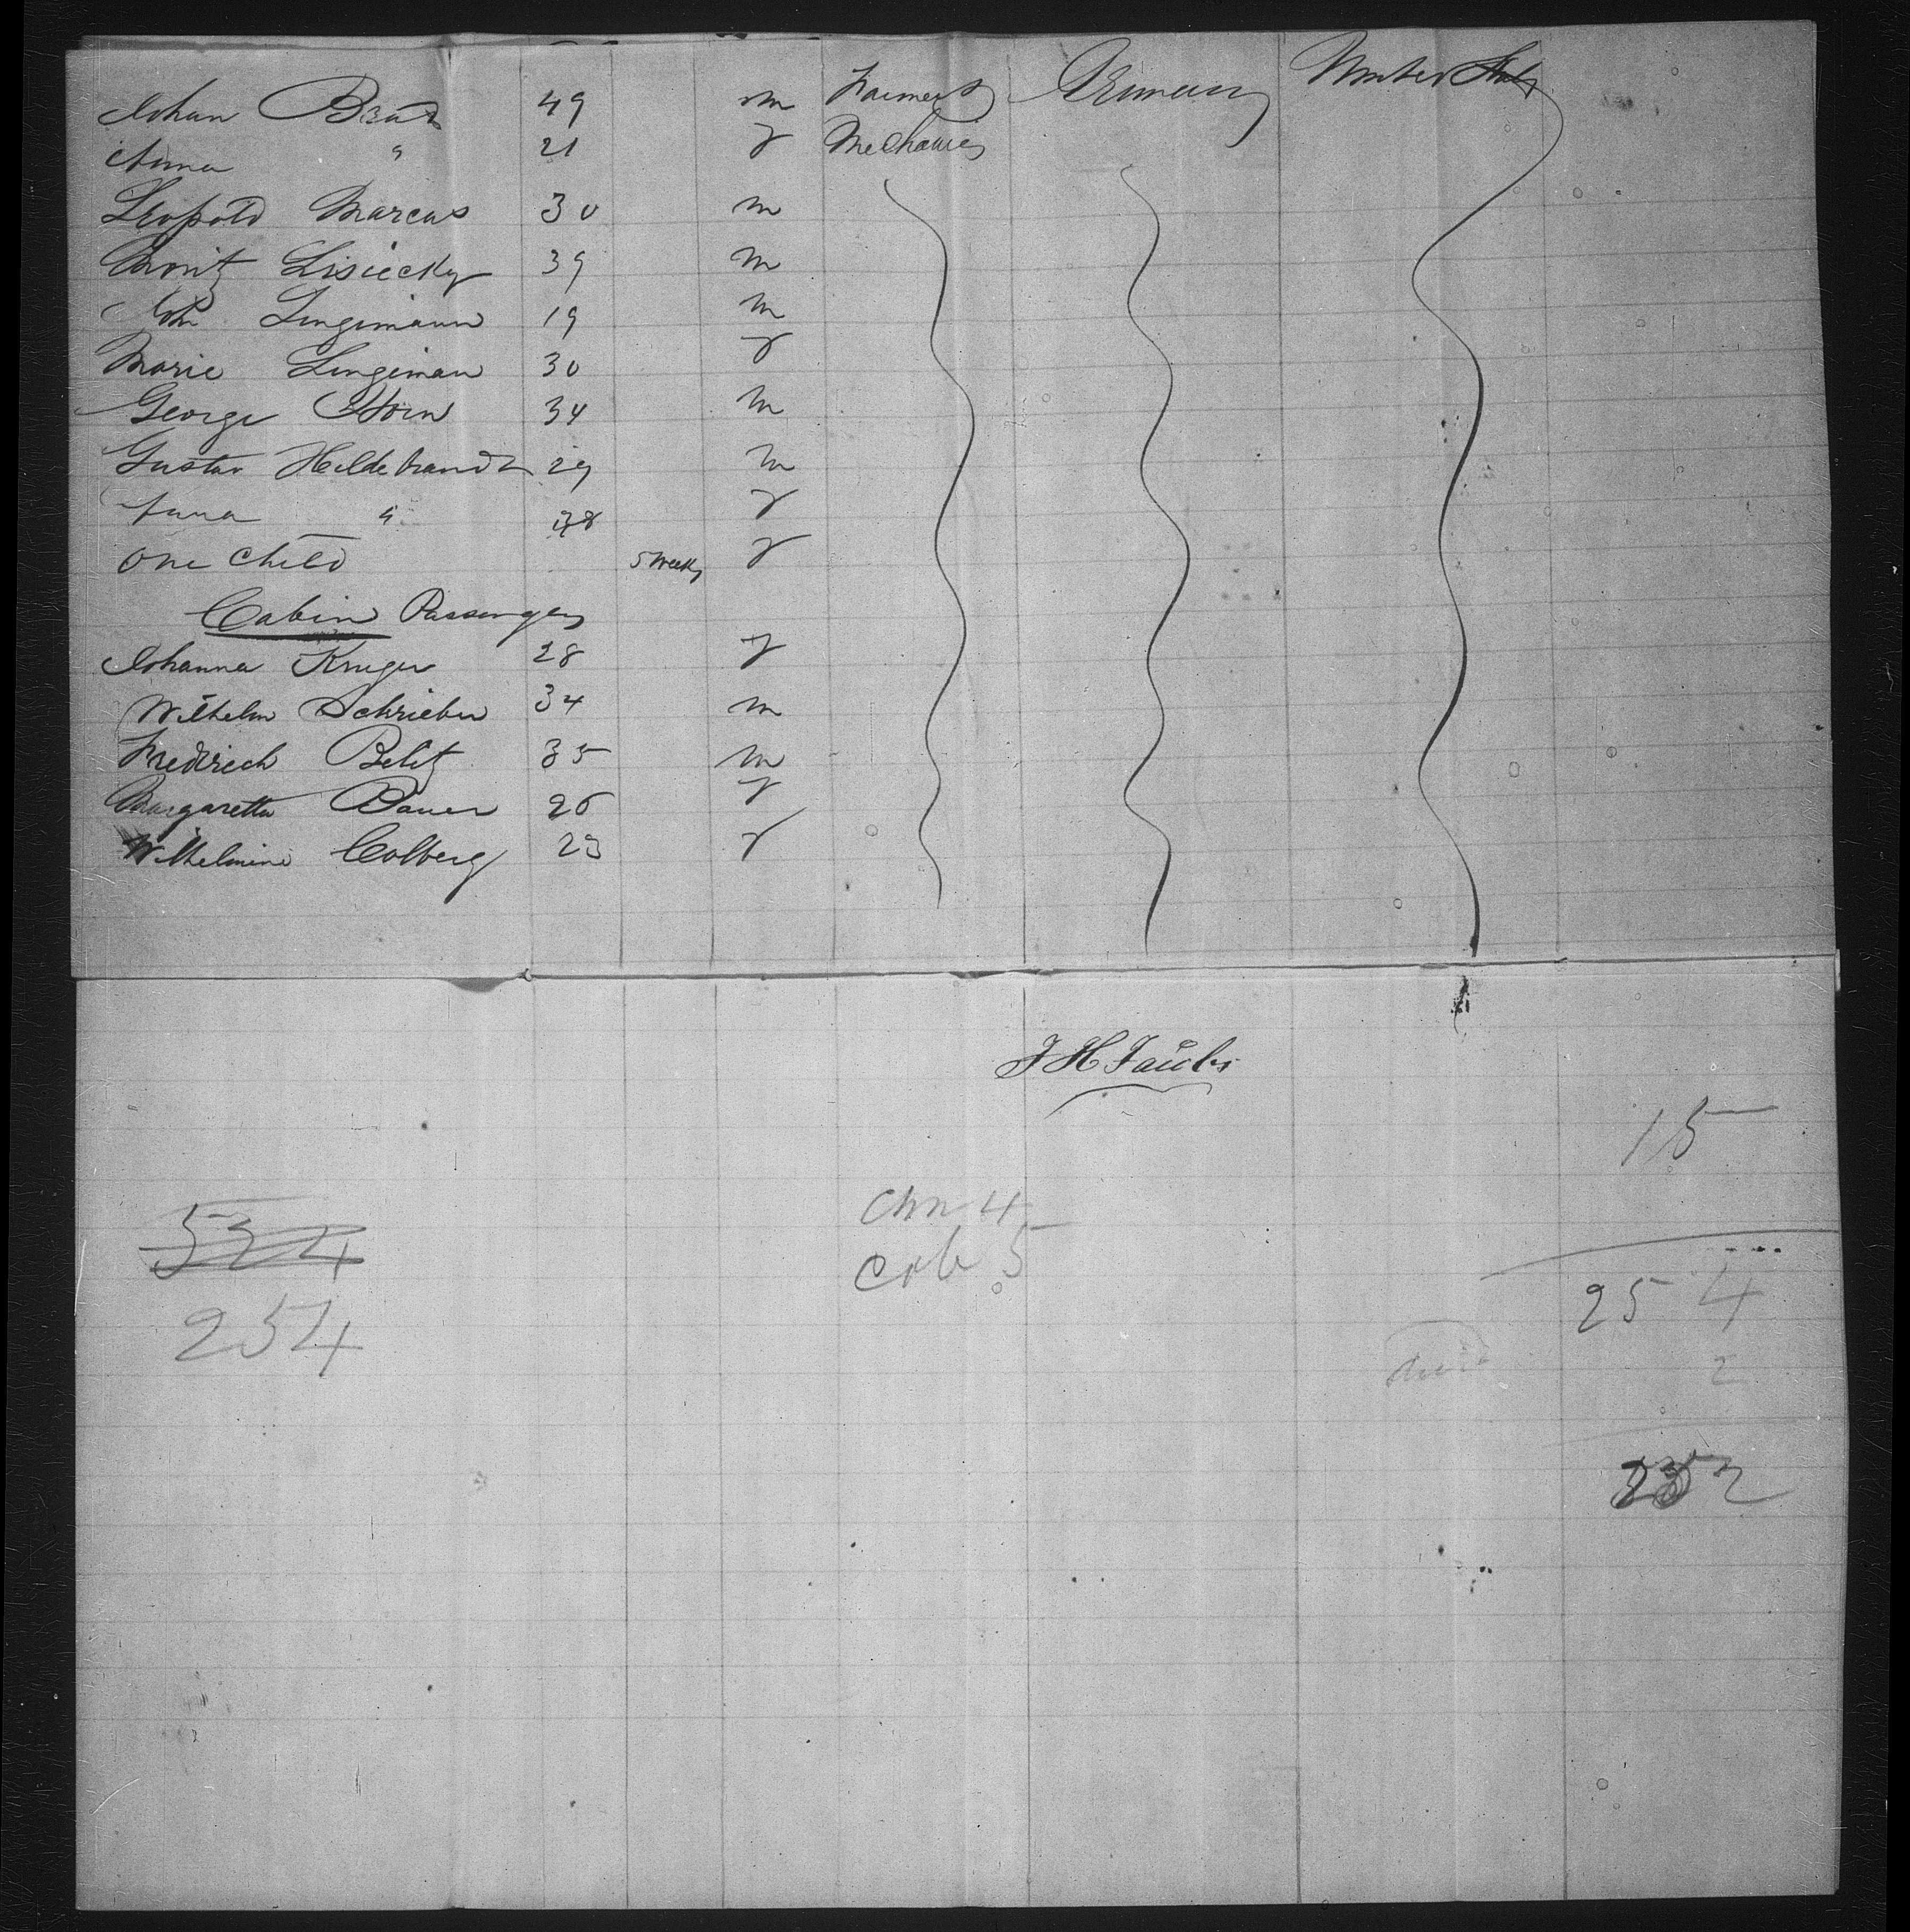 Johan Braun 49 m Farmers Germany United States
Anna " 21 f Mechanics
Leopold Marcus 30 m
Moritz Lisiecky 39 m
Joh Lingimann 19 m
Marie Lingiman 30 f
George Horn 34 m
Gustav Hildebrandt 29 m
Anna " 28 f
One Child 5 Weeks f
Cabin Passengers
Johanna Kruger 28 f
Wilhelm Schrieber 34 m
Fredrich Belitz 35 m
Margaretta Bauer 26 f
Wilhelmine Colberg 23 f
J H Jacobs
15
Chn 4
524
Cab 5
25 4
254
2
252